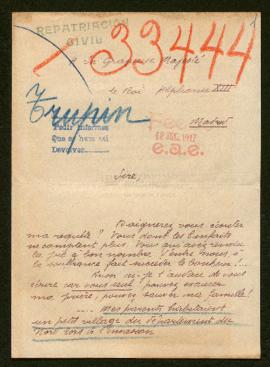 REPATRIACION
CIVIL
33444
A Sa Gracieuse Majesté
le Roi Alphonse XIII
Trupin
Madrid
Pedir informes
Que se hace así
Devolver
12 DIC. 1917
e.a.e.
Sire,
Daignerez vous écouter
ma requête? Vous dont les bienfaits
ne comptent plus. Vous qui avez rendu
la foi à bon nombre! entre nous
la souffrance fait succéder le bonheur!..
Aussi ai-je l'audace de vous
écrire car vous seul! pouvez exaucer
ma prière, pouvez sauver ma famille!
.... Mes parents habitaient
un petit village du département du
Nord lors de l'invasion